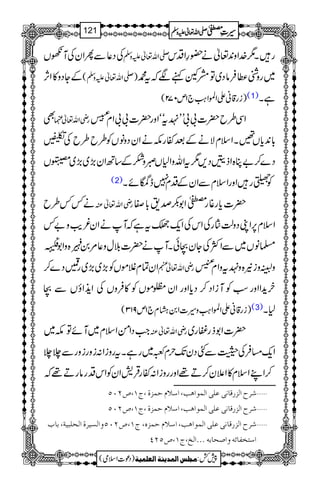 سیرتِ مصطفیٰ صلی اللہ تعالیٰ علیہ وسلم 121
رہیں۔ مگر خداوند تعالیٰ نے حضور اقدس صلی اللہ تعالیٰ علیہ وسلم کی دعا سے پھر ان کی آنکھوں
میں روشنی عطا فرما دی تو مشرکین کہنے لگے کہ یہ محمد (صلی اللہ تعالیٰ علیہ وسلم) کے جادو کا اثر
ہے۔ (1) (زرقانی علی المواہب ج۱ ص۲۷۰)
اسی طرح حضرت بی بی "نہدیہ" اور حضرت بی بی ام عبیس رضی اللہ تعالیٰ عنہما بھی
باندیاں تھیں۔ اسلام لانے کے بعد کفار مکہ نے ان دونوں کو طرح طرح کی تکلیفیں
دے کر بے پناہ اذیتیں دیں مگر یہ اللہ والیاں صبر و شکر کے ساتھ ان بڑی بڑی مصیبتوں
کو جھیلتی رہیں اور اسلام سے ان کے قدم نہیں ڈگمگائے۔ (2)
حضرت یار غار مصطفیٰ ابوبکر صدیق با صفا رضی اللہ تعالیٰ عنہ نے کس کس طرح
اسلام پر اپنی دولت نثار کی اس کی ایک جھلک یہ ہے کہ آپ نے ان غریب و بے کس
مسلمانوں میں سے اکثر کی جان بچائی۔ آپ نے حضرت بلال و عامر بن فہیرہ و ابو فکیہہ
و لبینہ و زنیرہ و نہدیہ و ام عبیس رضی اللہ تعالیٰ عنہم ان تمام غلاموں کو بڑی بڑی رقمیں دے کر
خریدا اور سب کو آزاد کر دیا اور ان مظلوموں کو کافروں کی ایذاؤں سے بچا
لیا۔ (3) (زرقانی علی المواہب وسیرت ابن ہشام ج۱ ص۳۱۹)
حضرت ابوذر غفاری رضی اللہ تعالیٰ عنہ جب دامن اسلام میں آئے تو مکہ میں
ایک مسافر کی حیثیت سے کئی دن تک حرم کعبہ میں رہے۔ یہ روزانہ زور زور سے چلا چلا
کر اپنے اسلام کا اعلان کرتے تھے اور روزانہ کفار قریش ان کو اس قدر مارتے تھے کہ
شرح الزرقانی علی المواهب، اسلام حمزة، ج۱، ص۵۰۲
شرح الزرقانی علی المواهب، اسلام حمزة، ج۱، ص۵۰۲
شرح الزرقانی علی المواهب، اسلام حمزة، ج۱، ص۵۰۲ والسیرة الحلبیة، باب
استخفائه واصحابه ...الخ، ج۱، ص۴۲۵
پیش کش: مجلس المدینة العلمیة (دعوتِ اسلامی)